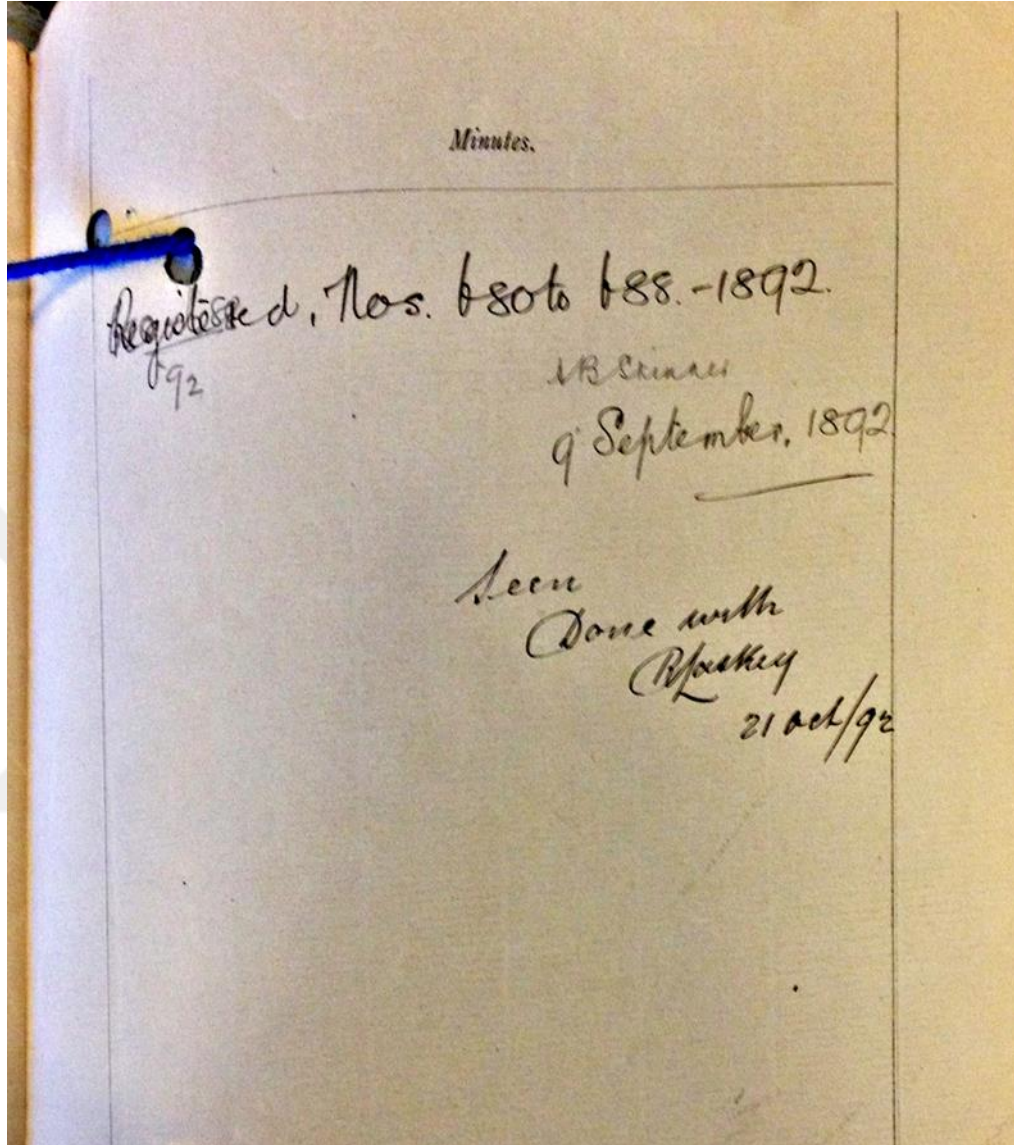 Minutes.
Registered, Nos. 680 to 688.-1892.
92
A B Skinner
9 September, 1892
Seen
Done with
RLaskey
21 Oct/92